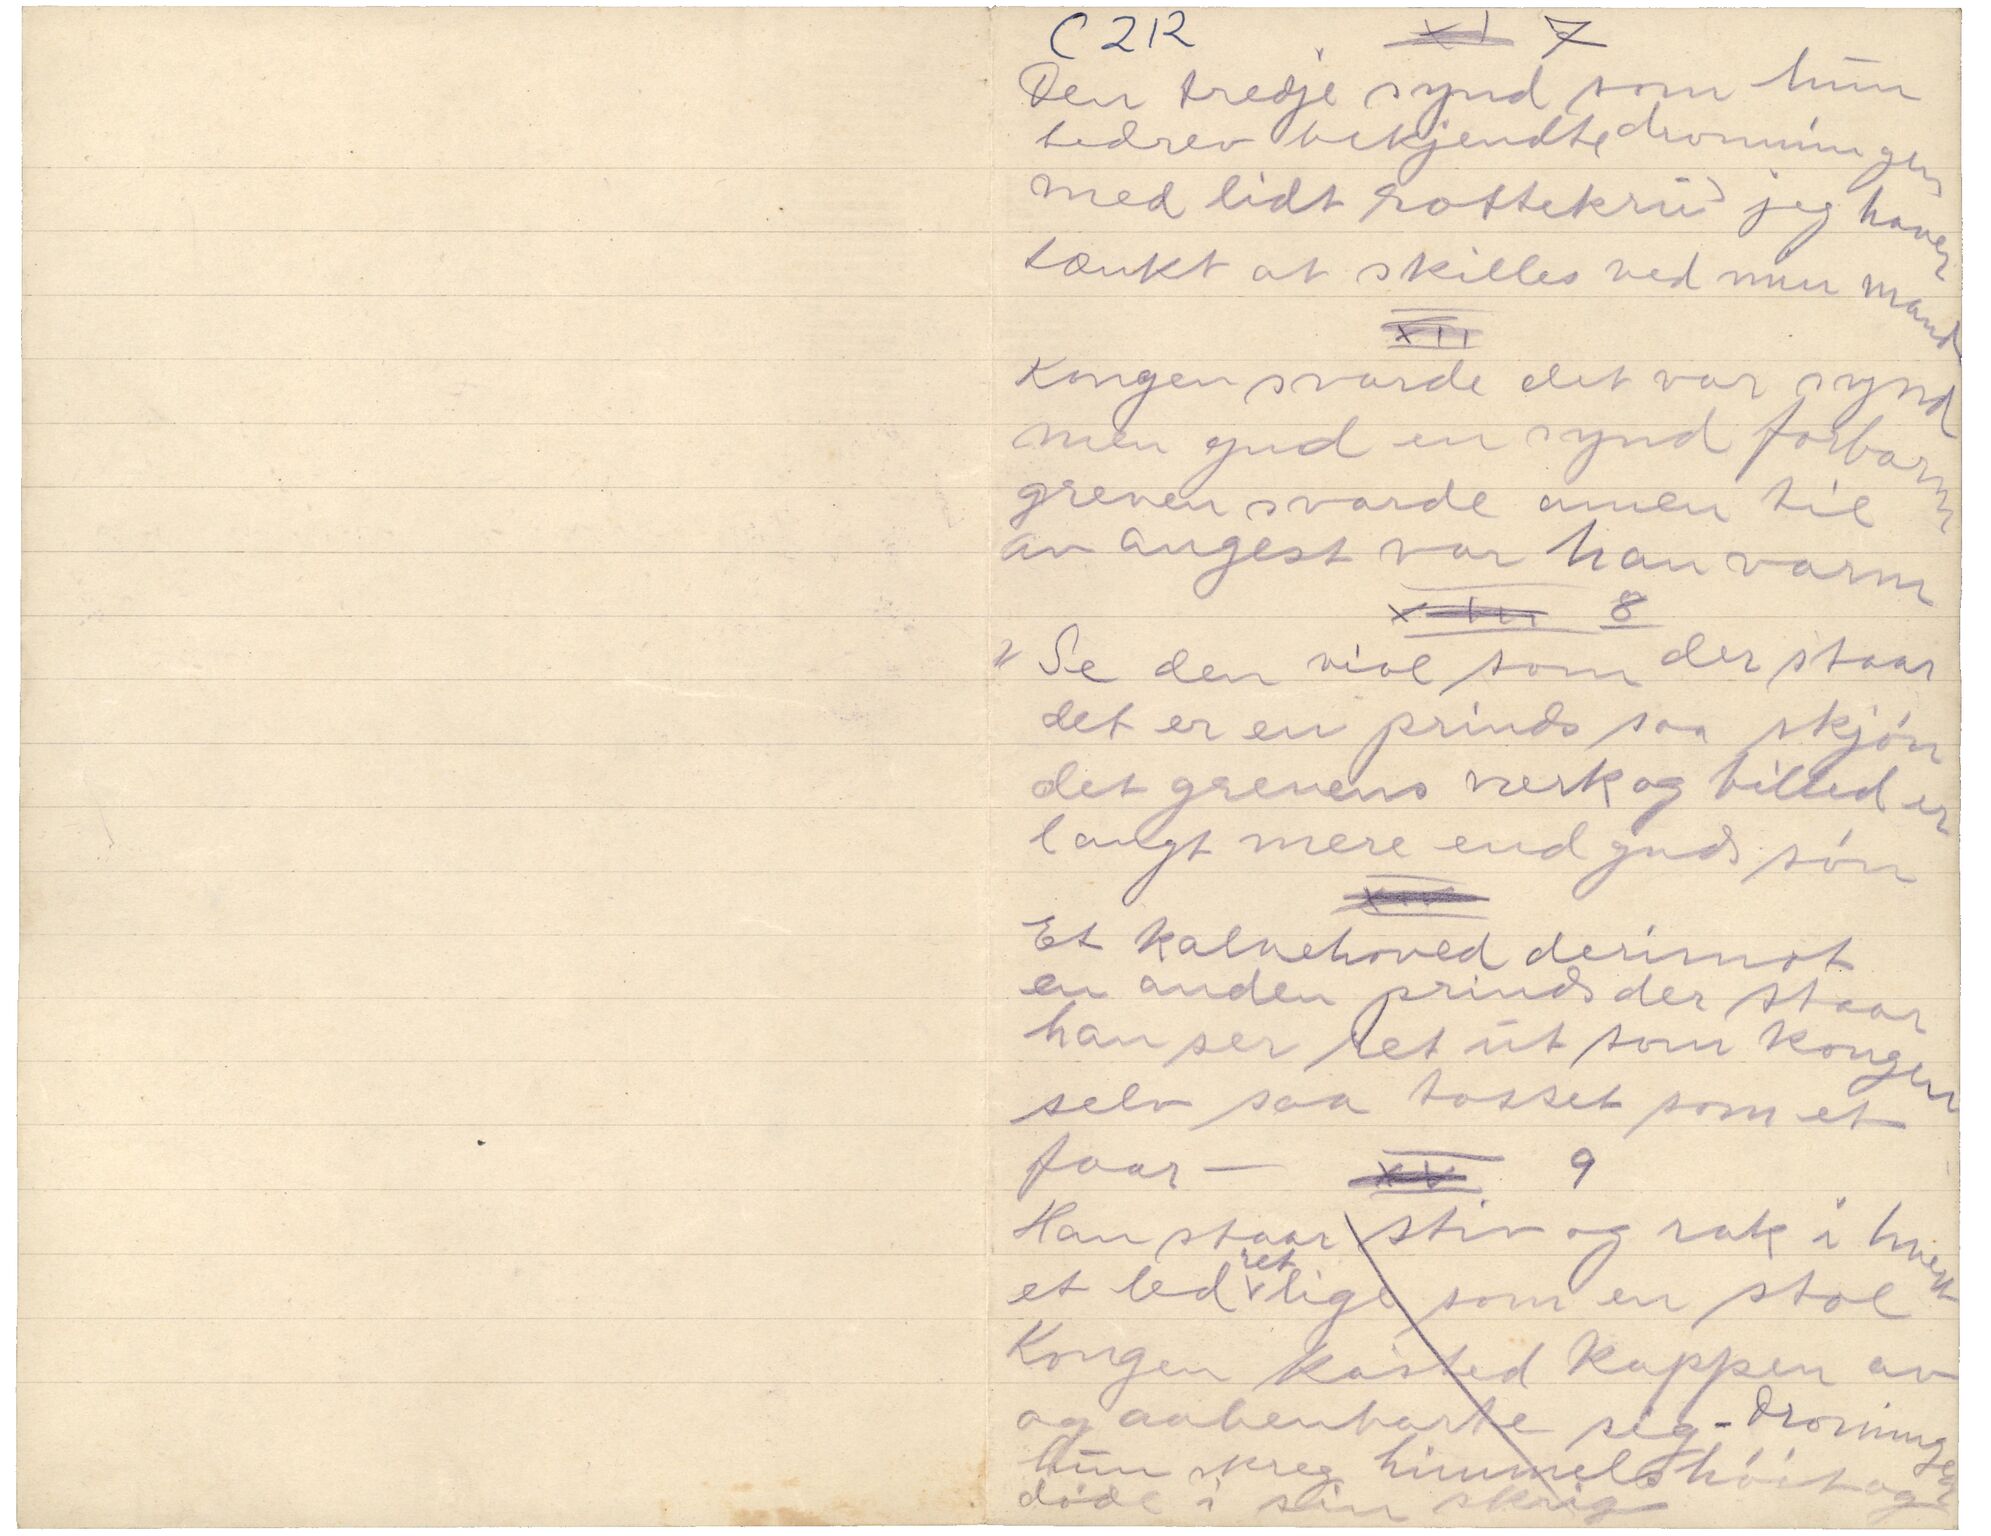 C212 XI 7
Den tredje synd som hun
bedrev bekjendte dronningen
med lidt rottekrud jeg haver
tænkt at skilles ved min mand
XII
Kongen svarde det var synd
men gud en synd forbarm
greven svarde amen til
av angest var han varm
XIII 8
" Se den viol som der staar
det er en prinds saa skjön
det grevens verk og billed er
langt mere end guds sön
XIV
Et kalvehoved derimot
en anden prinds der staar
han ser ret ut som kongen
selv saa tosset som et
faar — XV 9
Han staar stiv og rak i hvert
et led ret lige som en stol
Kongen kasted kappen av
og aabenbarte sig - Dronningen
hun skreg himmelshöit og
döde i sin skrig